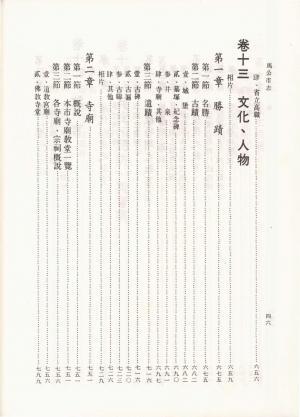 馬公市志
四六
肆、省立高職……六五六
卷十三　文化、人物
相片……六五九
第一章　勝蹟……六七五
第一節　名勝……六七五
第二節　古蹟……六八二
壹、城堡……六八二
貳、墓塚、紀念碑……六九〇
參、井泉……六九一
肆、寺廟、其他……六九七
第三節　遺蹟……七一六
壹、古碑……七一六
貳、古匾……七二〇
參、古磚……七二三
肆、其他……七二六
相片……七二九
第二章　寺廟……七五一
第一節　概說……七五一
第二節　本市寺廟教堂一覽……七五五
第三節　各寺廟、宗祠概說……七五六
壹、道教宮廟……七五六
貳、佛教寺堂……七九九